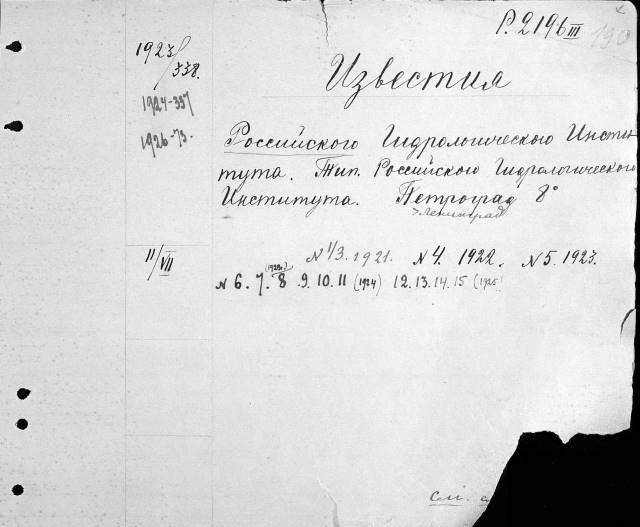 Р. 2196 III
190
1923/338.
1924-337
1926-73.
Известия
Российского Гидрологического Инсти-
тута. Тип. Российского Гидрологического
Института. Петроград 8°
Ленинград
11/VII
N 1/3. 1921. N 4. 1922. N 5. 1923.
N 6. 7. 8 .9. 10. 11 (1924) 12. 13. 14. 15 (1925)
См.